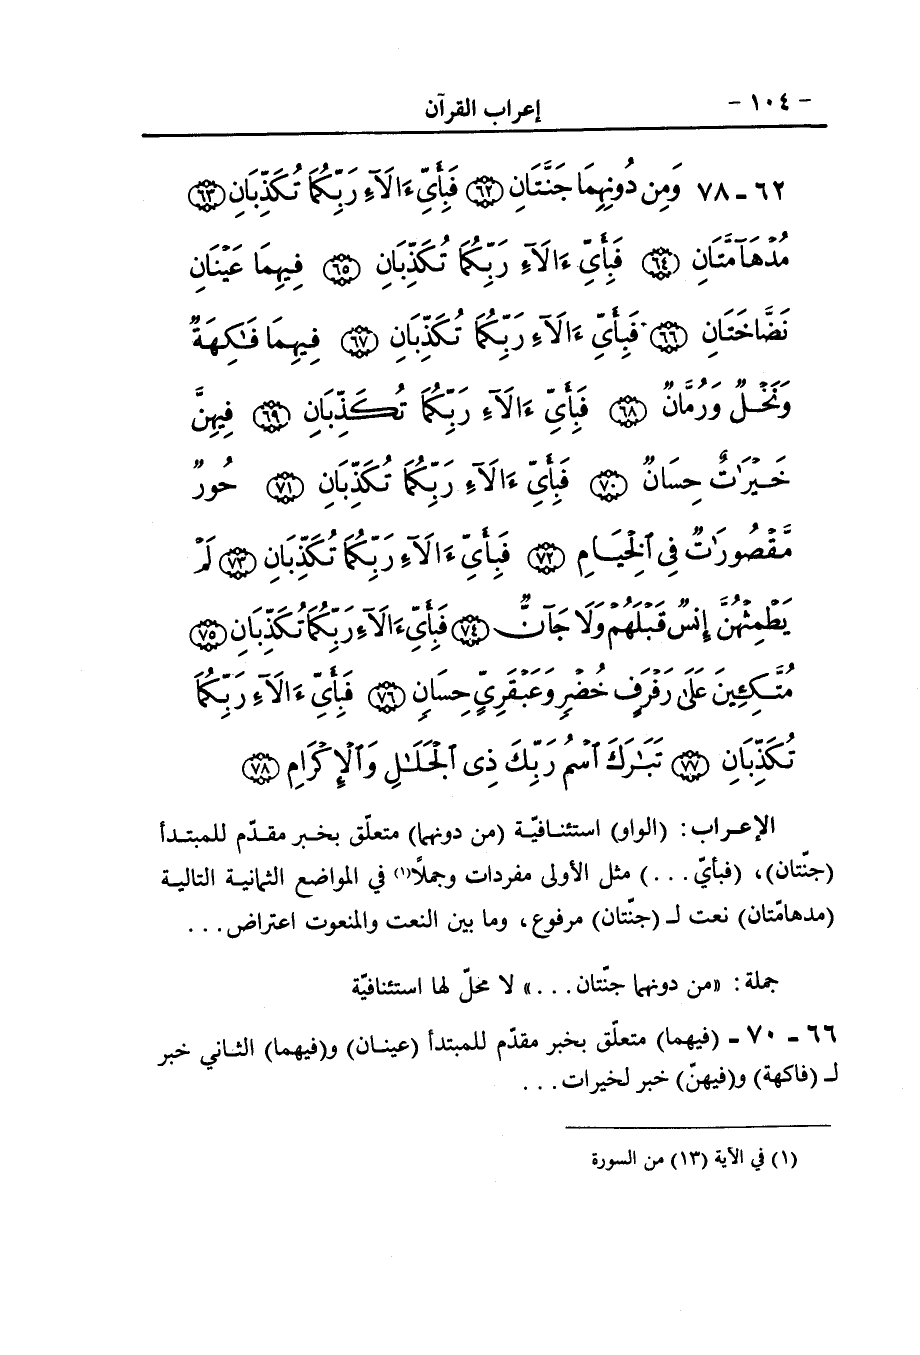 - ١٠٤ -
إعراب القرآن
٦٢ ـ ٧٨ وَمِن دُونِهِمَا جَنَّتَانِ ﴿٦٢﴾ فَبِأَيِّ ءَالَآءِ رَبِّكُمَا تُكَذِّبَانِ ﴿٦٣﴾
مُدْهَآمَّتَانِ ﴿٦٤﴾ فَبِأَيِّ ءَالَآءِ رَبِّكُمَا تُكَذِّبَانِ ﴿٦٥﴾ فِيهِمَا عَيْنَانِ
نَضَّاخَتَانِ ﴿٦٦﴾ فَبِأَيِّ ءَالَآءِ رَبِّكُمَا تُكَذِّبَانِ ﴿٦٧﴾ فِيهِمَا فَٰكِهَةٌ
وَنَخْلٌ وَرُمَّانٌ ﴿٦٨﴾ فَبِأَيِّ ءَالَآءِ رَبِّكُمَا تُكَذِّبَانِ ﴿٦٩﴾ فِيهِنَّ
خَيْرَٰتٌ حِسَانٌ ﴿٧٠﴾ فَبِأَيِّ ءَالَآءِ رَبِّكُمَا تُكَذِّبَانِ ﴿٧١﴾ حُورٌ
مَّقْصُورَٰتٌ فِى ٱلْخِيَامِ ﴿٧٢﴾ فَبِأَيِّ ءَالَآءِ رَبِّكُمَا تُكَذِّبَانِ ﴿٧٣﴾ لَمْ
يَطْمِثْهُنَّ إِنسٌ قَبْلَهُمْ وَلَا جَآنٌّ ﴿٧٤﴾ فَبِأَيِّ ءَالَآءِ رَبِّكُمَا تُكَذِّبَانِ ﴿٧٥﴾
مُتَّكِـِٔينَ عَلَىٰ رَفْرَفٍ خُضْرٍ وَعَبْقَرِيٍّ حِسَانٍ ﴿٧٦﴾ فَبِأَيِّ ءَالَآءِ رَبِّكُمَا
تُكَذِّبَانِ ﴿٧٧﴾ تَبَٰرَكَ ٱسْمُ رَبِّكَ ذِى ٱلْجَلَٰلِ وَٱلْإِكْرَامِ ﴿٧٨﴾
الإعراب: (الواو) استئنافيّة (من دونهما) متعلّق بخبر مقدّم للمبتدأ
(جنّتان)، (فبأيّ . . .) مثل الأولى مفردات وجملًا(١) في المواضع الثمانية التالية
(مدهامّتان) نعت لـ (جنّتان) مرفوع، وما بين النعت والمنعوت اعتراض. . .
جملة: «من دونهما جنّتان. . .» لا محلّ لها استئنافيّة
٦٦ ـ ٧٠ ـ (فيهما) متعلّق بخبر مقدّم للمبتدأ (عينان) و(فيهما) الثاني خبر
لـ (فاكهة) و(فيهنّ) خبر لخيرات. . .
(١) في الآية (١٣) من السورة